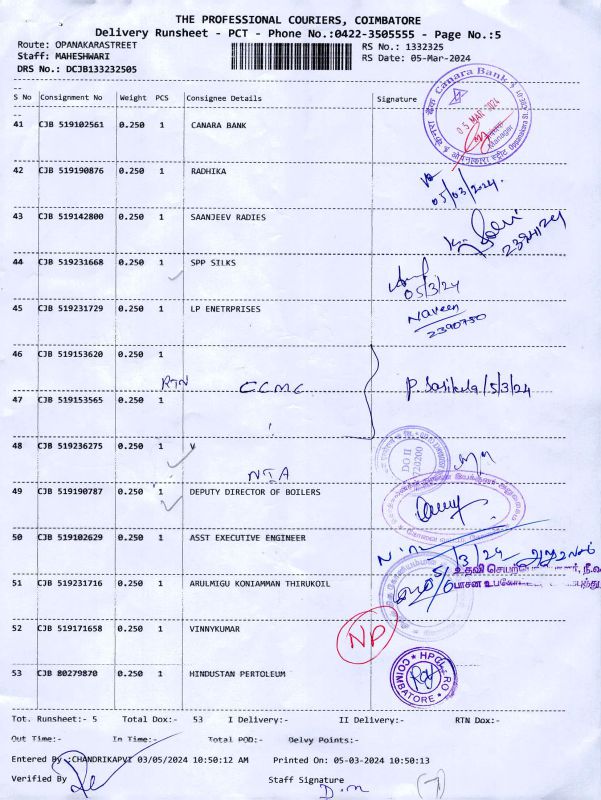 THE PROFESSIONAL COURIERS, COIMBATORE
Delivery Runsheet - PCT - Phone No.:0422-3505555 - Page No.:5
Route: OPANAKARASTREET RS No.: 1332325
Staff: MAHESHWARI RS Date: 05-Mar-2024
DRS No.: DCJB133232505
S No Consignment No Weight PCS Consignee Details Signature
41 CJB 519102561 0.250 1 CANARA BANK
Canara Bank
05 MAR 2024
Manager
42 CJB 519190876 0.250 1 RADHIKA
05/03/2024.
43 CJB 519142800 0.250 1 SAANJEEV RADIES
44 CJB 519231668 0.250 1 SPP SILKS
05/3/24
45 CJB 519231729 0.250 1 LP ENETRPRISES
Naveen
2390750
46 CJB 519153620 0.250 1
RTN CCMC P. Sasikala/5/3/24
47 CJB 519153565 0.250 1
48 CJB 519236275 0.250 1 V
DO II
NIA
49 CJB 519190787 0.250 1 DEPUTY DIRECTOR OF BOILERS
50 CJB 519102629 0.250 1 ASST EXECUTIVE ENGINEER
5/3/24
51 CJB 519231716 0.250 1 ARULMIGU KONIAMMAN THIRUKOIL
52 CJB 519171658 0.250 1 VINNYKUMAR
NP
53 CJB 80279870 0.250 1 HINDUSTAN PERTOLEUM
COIMBATORE RO
Tot. Runsheet:- 5 Total Dox:- 53 I Delivery:- II Delivery:- RTN Dox:-
Out Time:- In Time:- Total POD:- Delvy Points:-
Entered By :CHANDRIKAPVI 03/05/2024 10:50:12 AM Printed On: 05-03-2024 10:50:13
Verified By Staff Signature
D.m (7)